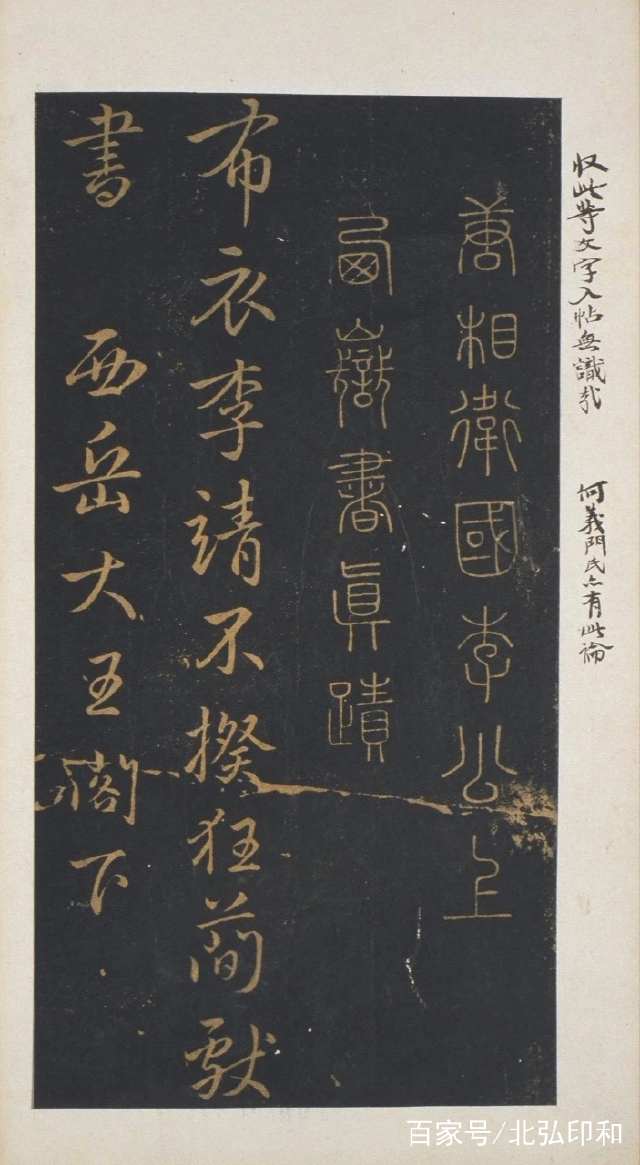 收此等文字入帖無識哉
何義門氏亦有此論
唐相衛國李公上
西嶽書真蹟
布衣李靖不揆狂簡獻
書 西岳大王閣下
百家号/北弘印和